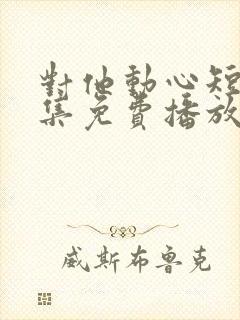 對他動心短
集免費播放
威斯布魯克